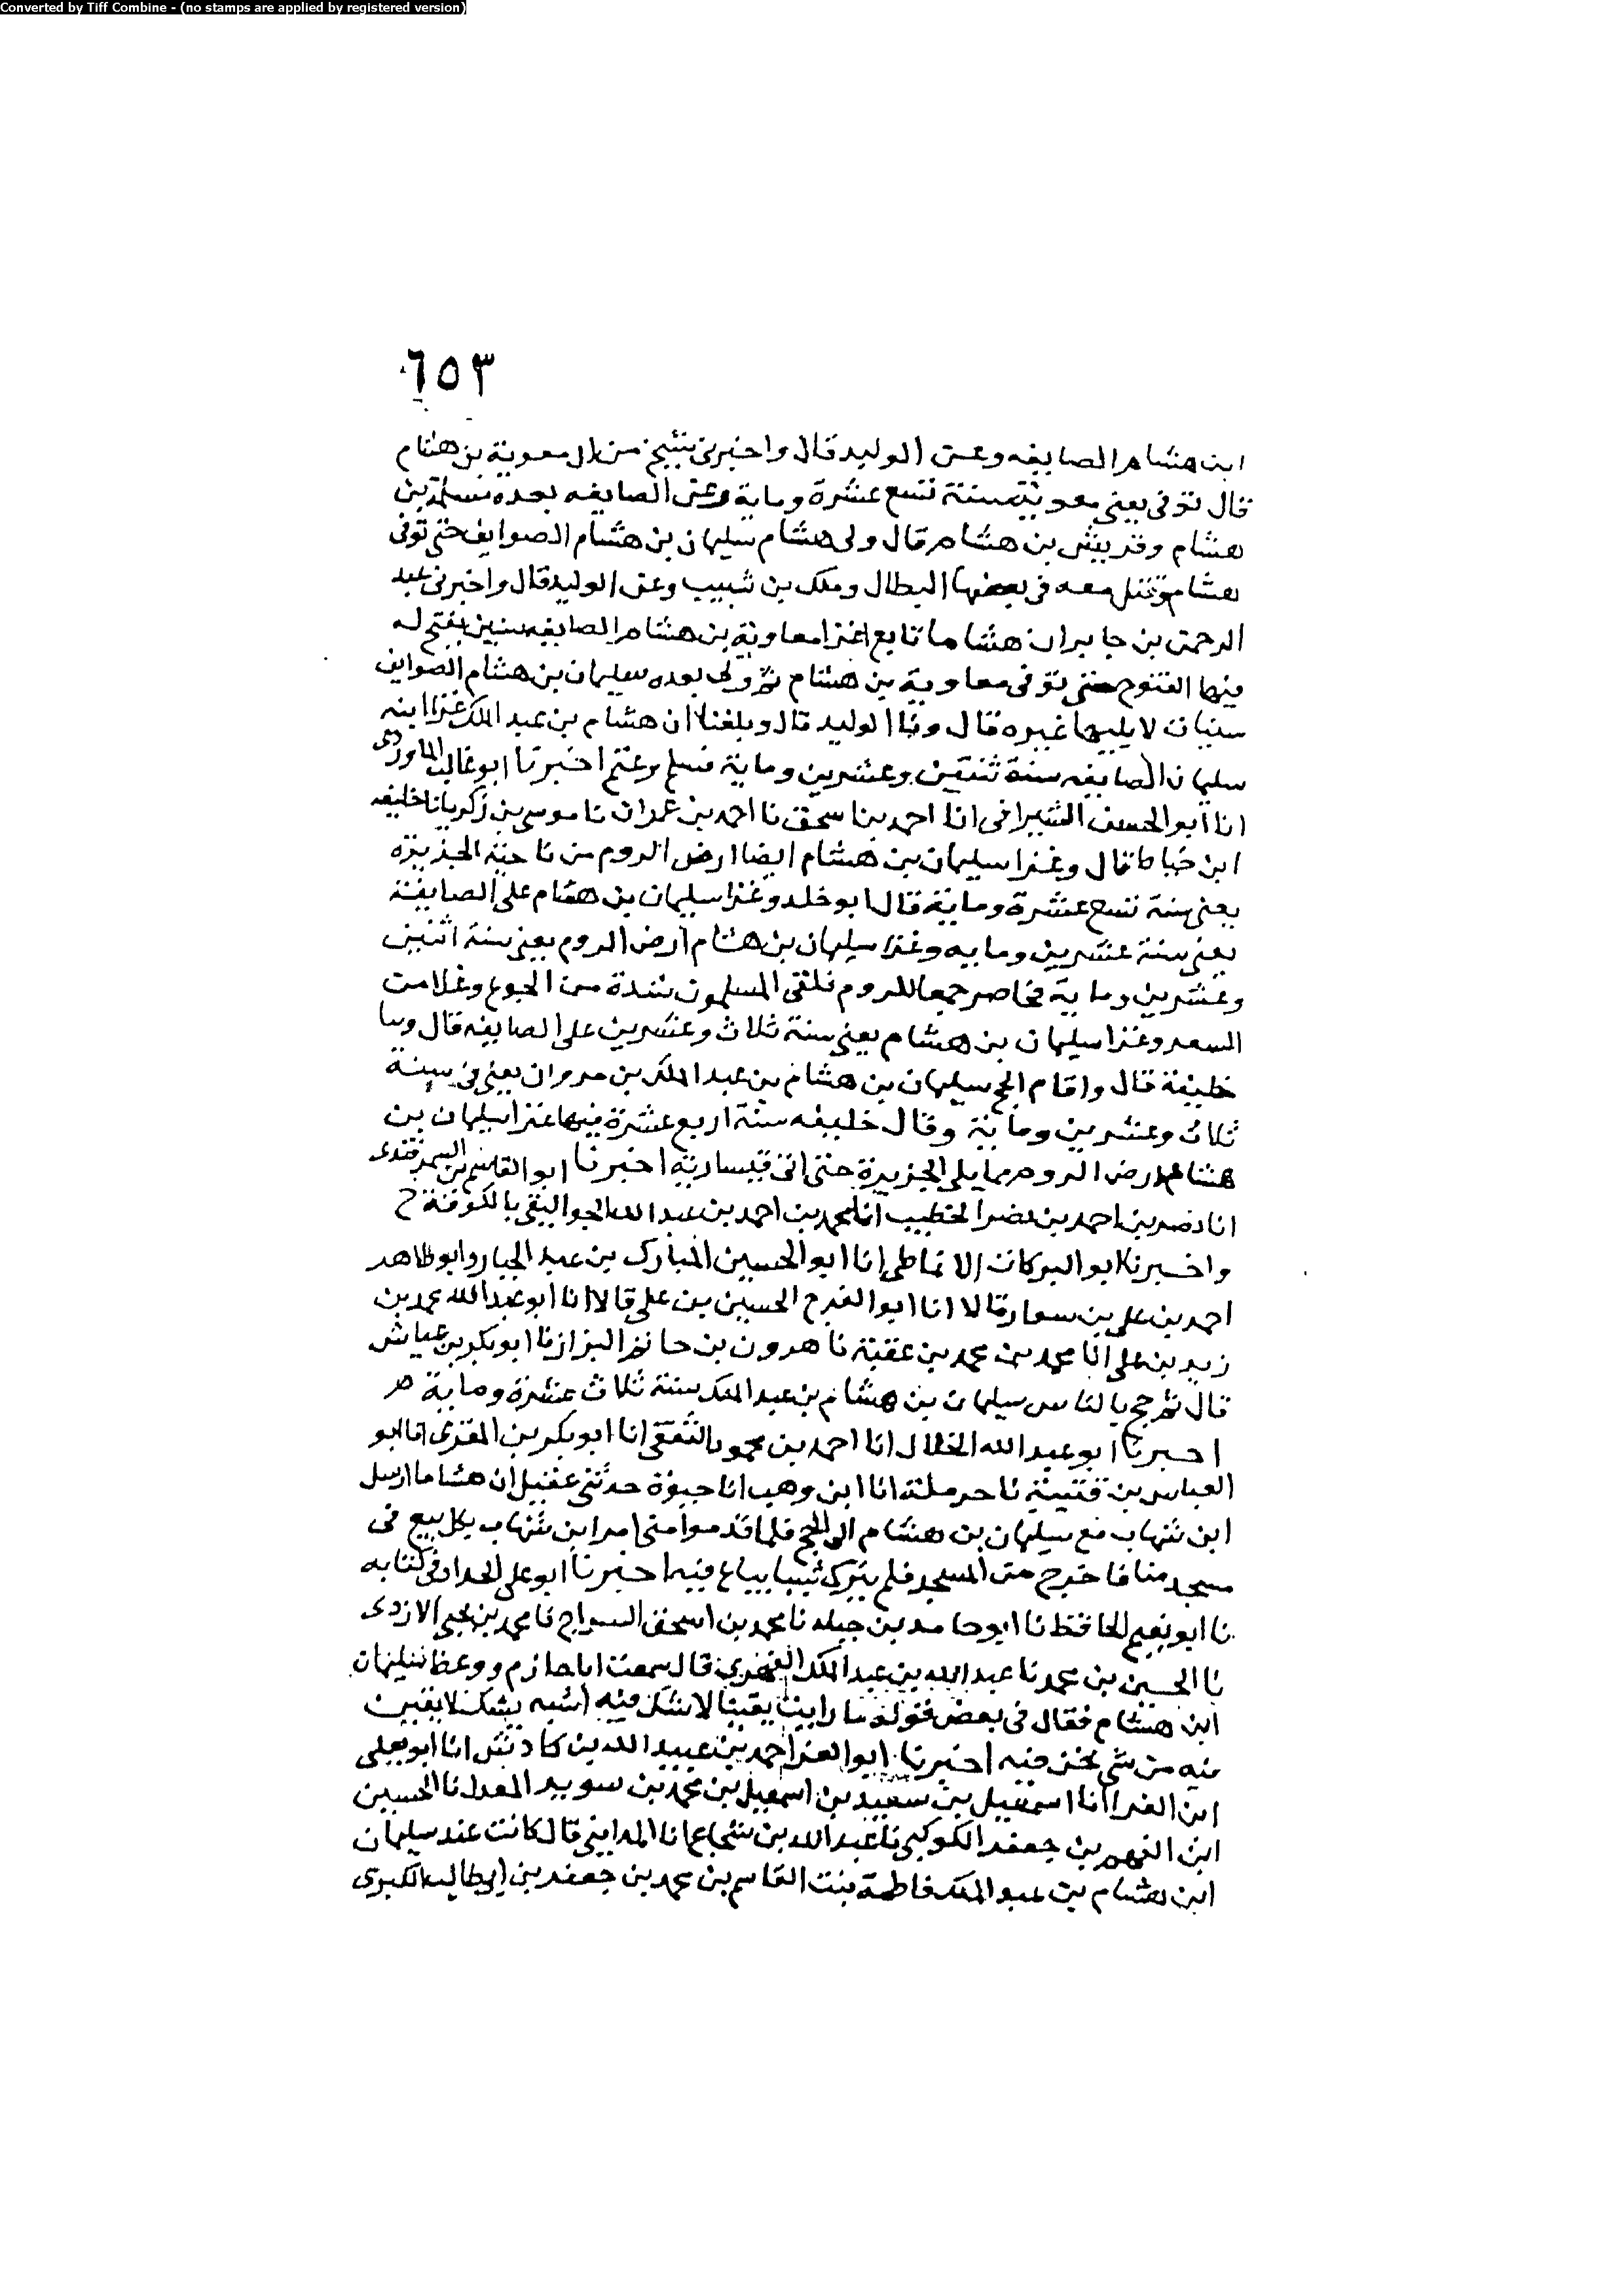 Converted by Tiff Combine - (no stamps are applied by registered version)
٦٥٣
ابن هشام الصايفه وعن الوليد قال واخبرني شيخ من ال معوية بن هشام
قال توفى يعنى معوية سنة تسع عشرة وماية وغزى الصايفه بعده مسلمة بن
هشام وقريش بن هشام قال ولى هشام سليمان بن هشام الصوايف حتى توفى
هشام وقتل معه فى بعضها البطال وملك بن شبيب وعن الوليد قال واخبرنى عبد
الرحمن بن جابر ان هشاما تابع اغزا معاوية بن هشام الصايفه سنين يفتح له
فيها الفتوح حتى توفى معاوية بن هشام ثم ولى بعده سليمان بن هشام الصوايف
سنيات لا يليها غيره قال ونا الوليد قال وبلغنا ان هشام بن عبد الملك غزا ابنه
سليمان الصايفه سنة ثنتين وعشرين وماية فسلم وغنم اخبرنا ابو غالب الماوردى
انا ابو الحسن الشيرافى انا احمد بن اسحق نا احمد بن عمران نا موسى بن زكريا نا خليفه
ابن خياط قال وغزا سليمان بن هشام ايضا ارض الروم من ناحية الجزيرة
يعنى سنة تسع عشرة وماية قال ابو خلد وغزا سليمان بن هشام على الصايفة
يعنى سنة عشرين ومايه وغزا سليمان بن هشام ارض الروم يعنى سنة اثنين
وعشرين وماية فحاصر جمعا للروم فلقى المسلمون شدة من الجوع وغلا من
السعر وغزا سليمان بن هشام يعنى سنة ثلاث وعشرين على الصايفه قال ونا
خليفة قال واقام الحج سليمان بن هشام بن عبد الملك بن مروان يعنى فى سنة
ثلاث وعشرين وماية وقال خليفه سنة اربع عشرة فيها غزا سليمان بن
هشام ارض الروم مما يلى الجزيرة حتى اتى قيسارية اخبرنا ابو القاسم بن السمرقندى
انا نصر بن احمد بن نصر الخطيب انا محمد بن احمد بن عبد الله الجواليقى بالكوفة ح
واخبرنا ابو البركات الانماطى انا ابو الحسين المبارك بن عبد الجبار وابو طاهر
احمد بن على بن سوار قالا انا ابو الفرج الحسين بن على قالا انا ابو عبد الله محمد بن
زيد بن على انا محمد بن محمد بن عقبة نا هرون بن حاتم البزاز نا ابو بكر بن عياش
قال ثم حج بالناس سليمان بن هشام بن عبد الملك سنة ثلاث عشرة وماية
اخبرنا ابو عبد الله الخلال انا احمد بن محمود الثقفى انا ابو بكر بن المقرى انا ابو
العباس بن قتيبة نا حرملة انا ابن وهب انا حيوة حدثنى عقيل ان هشاما ارسل
ابن شهاب مع سليمان بن هشام الى الحج فلما قدموا منى امر ابن شهاب بكل بيع فى
مسجد منا فاخرج من المسجد فلم يترك شيبا يباع فيه اخبرنا ابو على الحداد فى كتابه
نا ابو نعيم الحافظ نا ابو حامد بن جبله نا محمد بن اسحق السراج نا محمد بن يحيى الازدى
نا الحسين بن محمد نا عبد الله بن عبد الملك الفهرى قال سمعت ابا حازم ووعظ سليمان
ابن هشام فقال فى بعض قوله ما رايت يقينا لا شك فيه اشبه بشك لا يقين
فيه من شى نحن فيه اخبرنا ابو العز احمد بن عبيد الله بن كادش انا ابو يعلى
ابن الفرا انا اسمعيل بن سعيد بن اسمعيل بن محمد بن سويد المعدل نا الحسين
ابن الفهم بن جعفر الكوكبى نا عبد الله بن شجاع انا المداينى قال كانت عند سليمان
ابن هشام بن عبد الملك فاطمة بنت القاسم بن محمد بن جعفر بن ابى طالب الكبرى